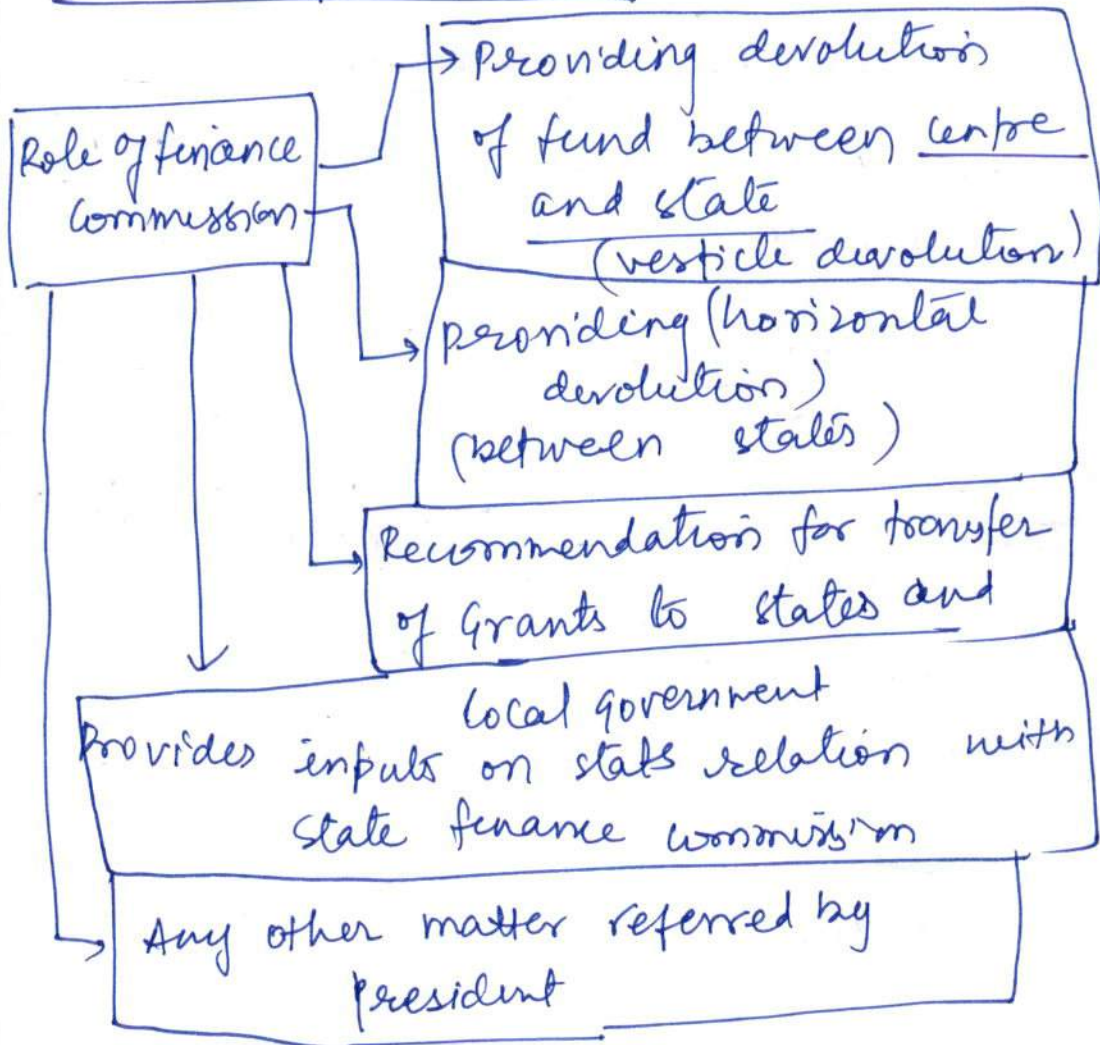 Role of finance
commission
Providing devolution
of fund between centre
and state
(verticle devolution)
providing (horizontal
devolution)
(between states)
Recommendation for transfer
of Grants to states and
local government
Provides inputs on stats relation with
state finance commission
Any other matter referred by
president